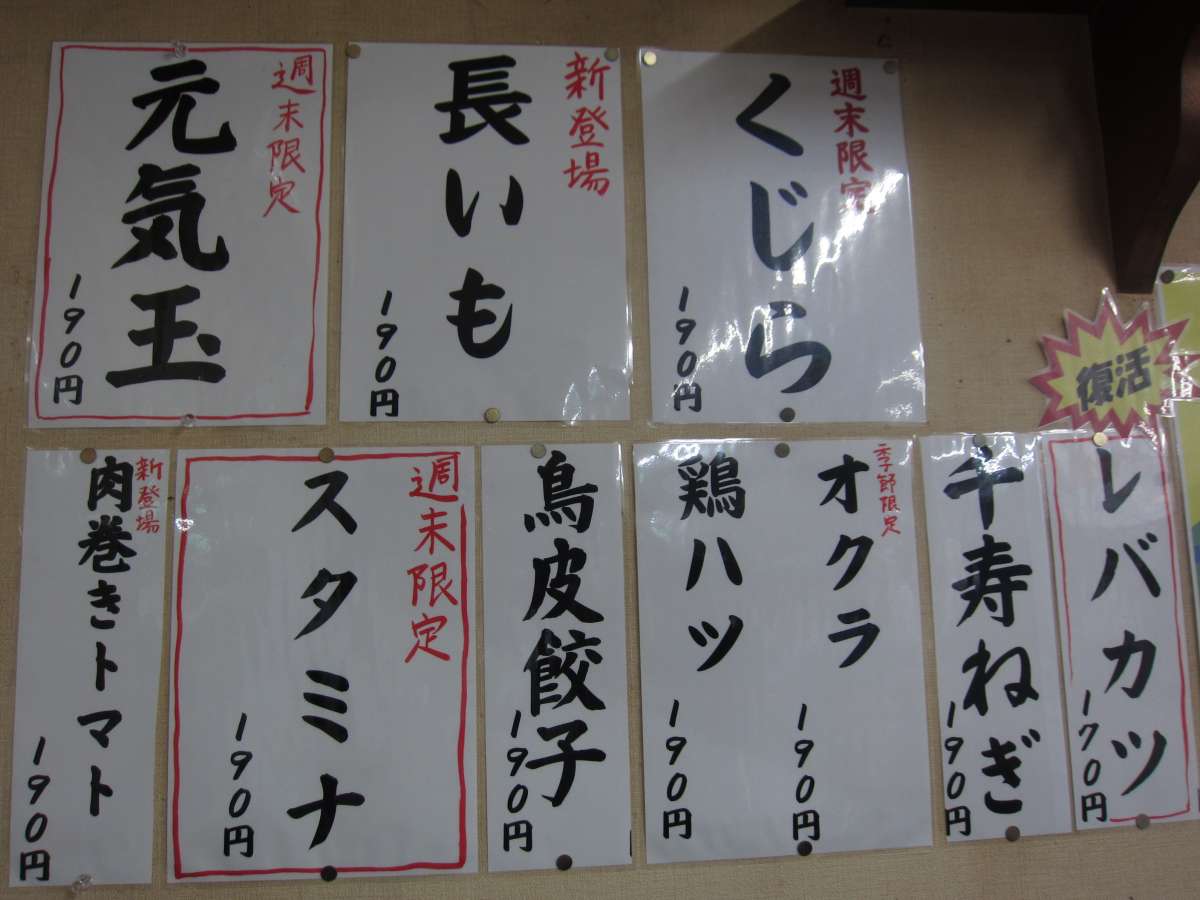 週末限定
くじら
190円
新登場
長いも
190円
週末限定
元気玉
190円
復活
レバカツ
170円
千寿ねぎ
190円
季節限定
オクラ
190円
鶏ハツ
190円
鳥皮餃子
190円
週末限定
スタミナ
190円
新登場
肉巻きトマト
190円